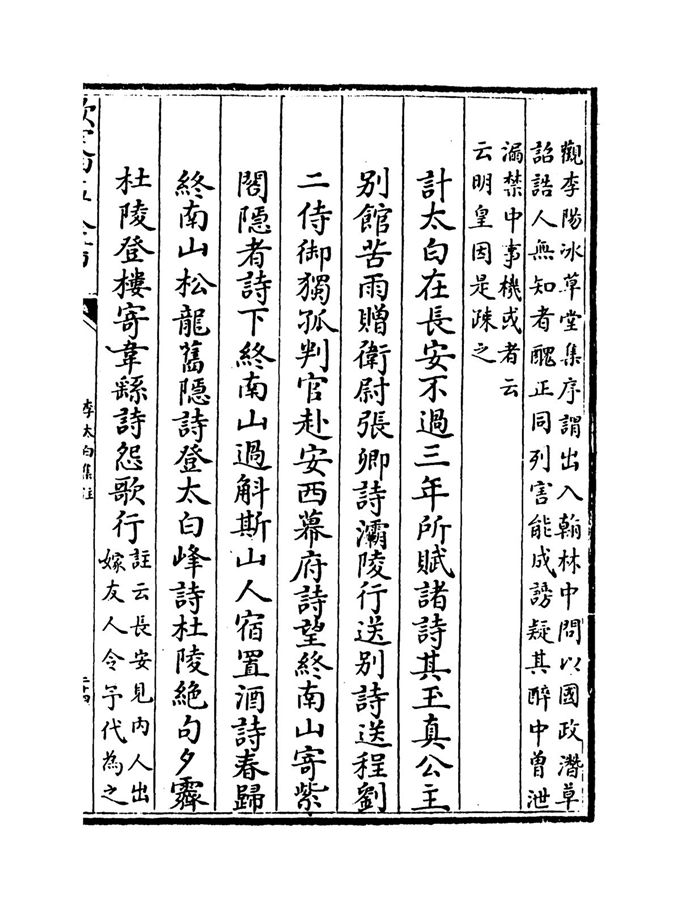 觀李陽冰草堂集序謂出入翰林中問以國政潛草
詔誥人無知者醜正同列害能成謗疑其醉中曾泄
漏禁中事機或者云
云明皇因是疎之
計太白在長安不過三年所賦諸詩其玉真公主
別館苦雨贈衛尉張卿詩灞陵行送別詩送程劉
二侍御獨孤判官赴安西幕府詩望終南山寄紫
閣隱者詩下終南山過斛斯山人宿置酒詩春歸
終南山松龍舊隱詩登太白峰詩杜陵絕句夕霽
杜陵登樓寄韋繇詩怨歌行
註云長安見內人出
嫁友人令予代為之
李太白集注